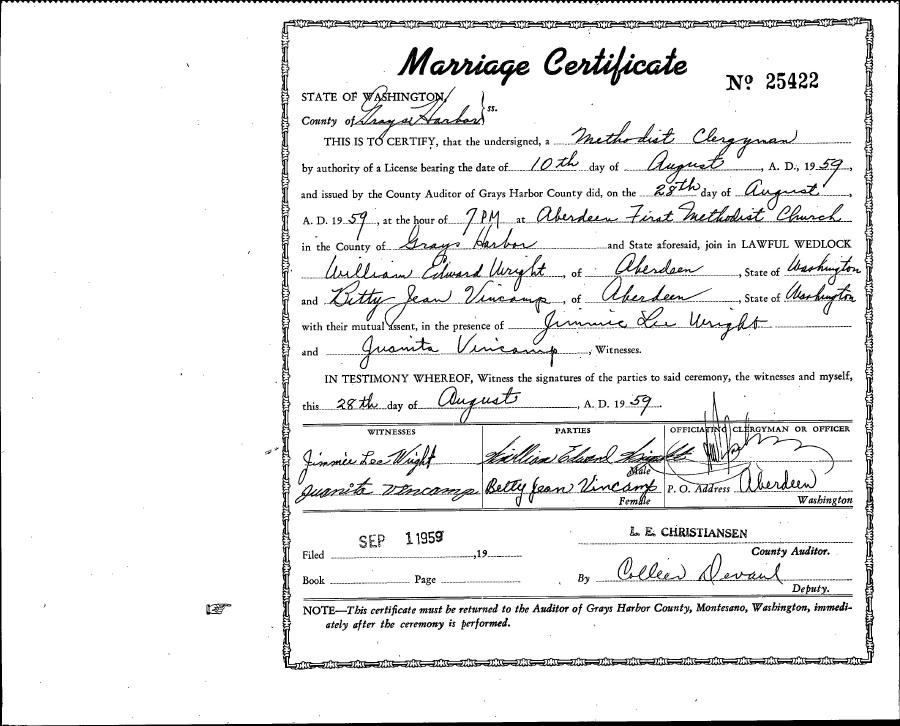 Marriage Certificate
Nº 25422
STATE OF WASHINGTON, } ss.
County of Grays Harbor
THIS IS TO CERTIFY, that the undersigned, a Methodist Clergyman
by authority of a License bearing the date of 10th day of August, A. D., 1959,
and issued by the County Auditor of Grays Harbor County did, on the 28th day of August,
A. D. 1959, at the hour of 7 PM at Aberdeen First Methodist Church
in the County of Grays Harbor and State aforesaid, join in LAWFUL WEDLOCK
William Edward Wright, of Aberdeen, State of Washington
and Betty Jean Vincamp, of Aberdeen, State of Washington
with their mutual assent, in the presence of Jimmie Lee Wright
and Juanita Vincamp, Witnesses.
IN TESTIMONY WHEREOF, Witness the signatures of the parties to said ceremony, the witnesses and myself,
this 28th day of August, A. D. 1959.
WITNESSES PARTIES OFFICIATING CLERGYMAN OR OFFICER
Jimmie Lee Wright William Edward Wright
Male
Juanita Vincamp Betty Jean Vincamp P. O. Address Aberdeen
Female Washington
SEP 1 1959 L. E. CHRISTIANSEN
Filed ,19 County Auditor.
Book Page By Colleen Devaul
Deputy.
NOTE—This certificate must be returned to the Auditor of Grays Harbor County, Montesano, Washington, immedi-
ately after the ceremony is performed.